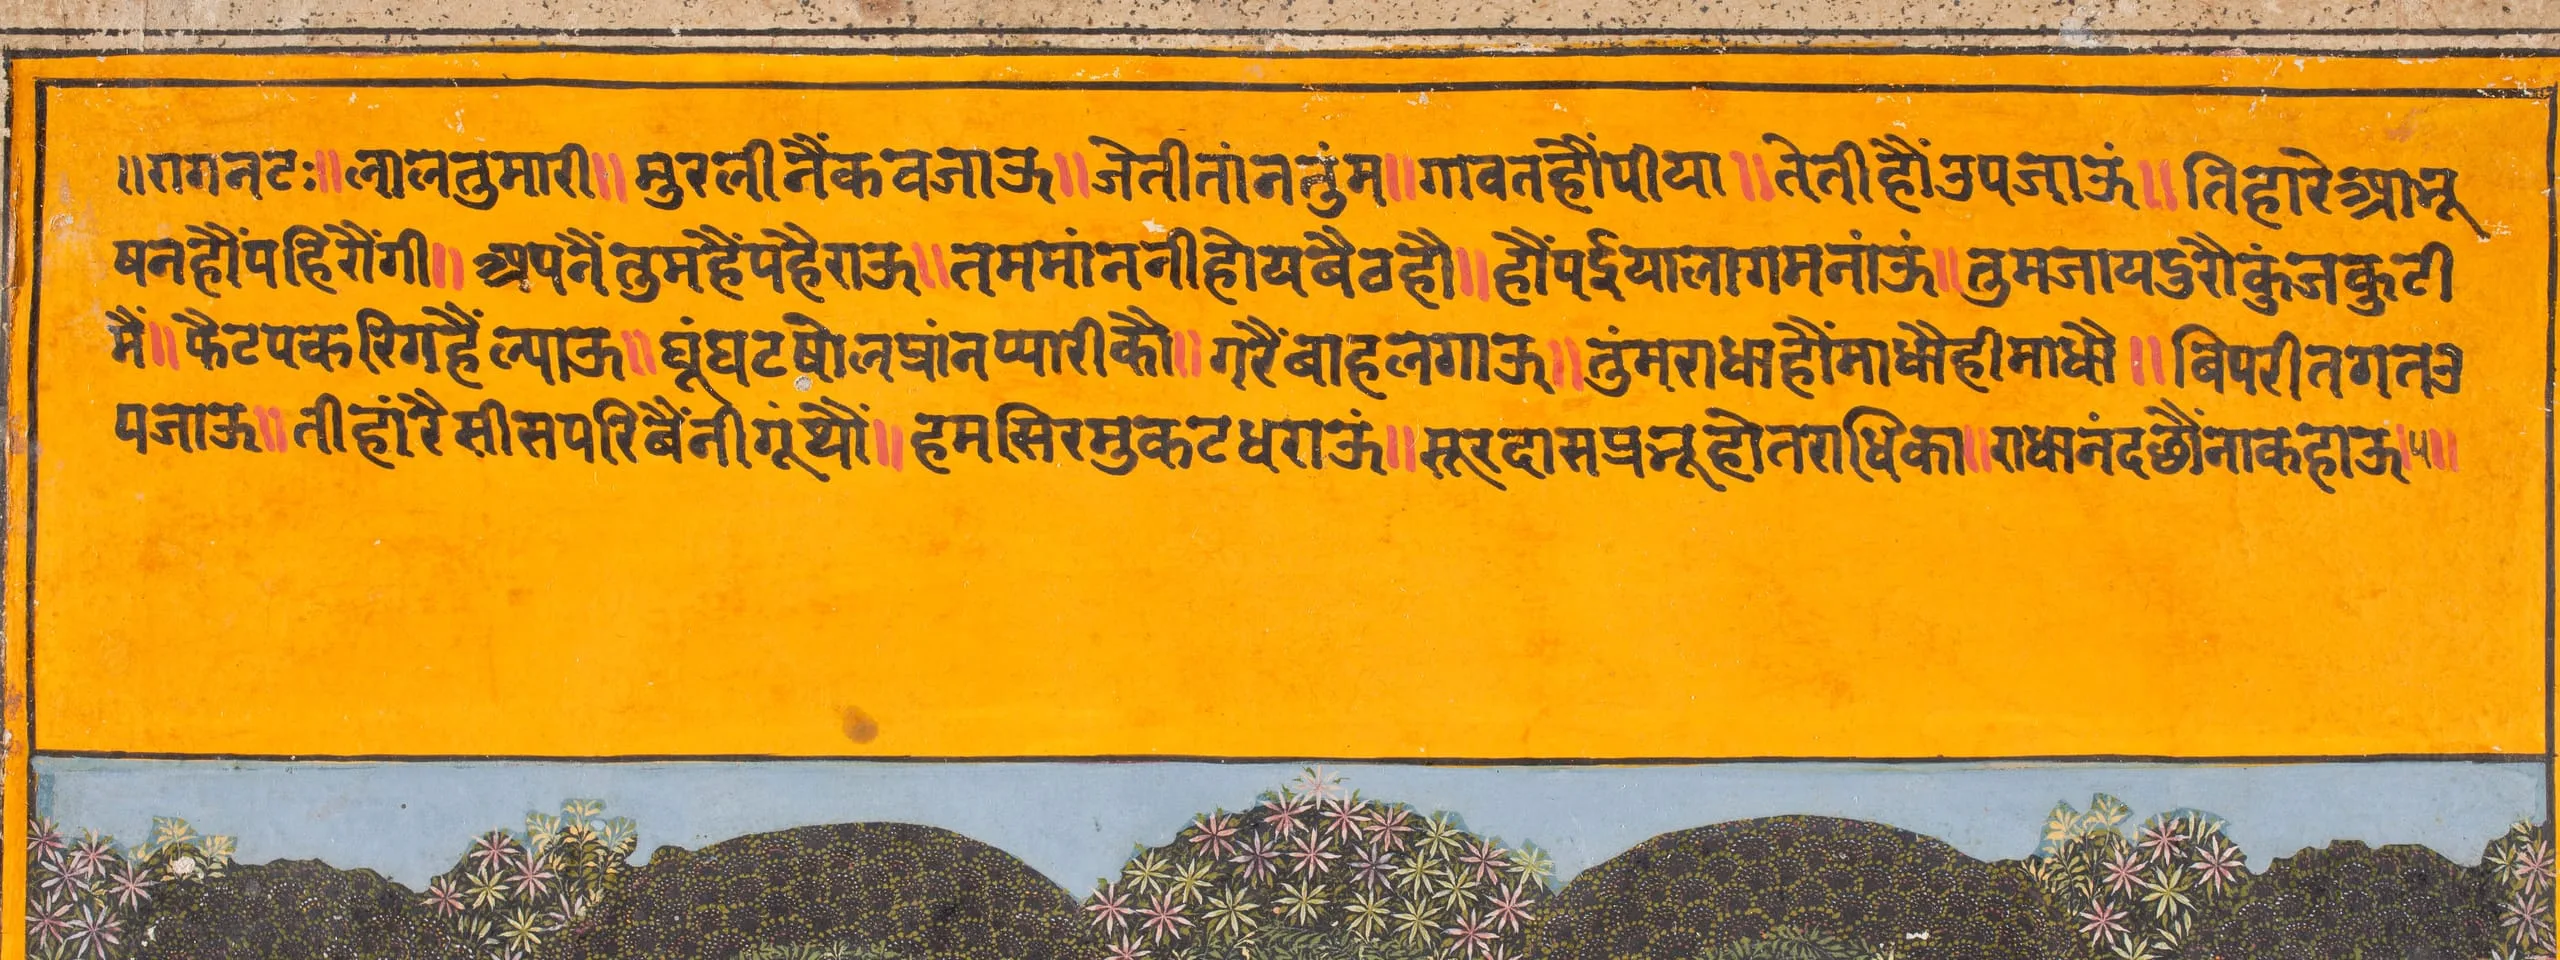 ॥रागनटः॥लालतुमारी॥मुरलीनैंकवजाऊ॥जेतीतांनतुंम॥गावनहौंपीया॥तेतीहौंउपजाऊं॥तिहारेआभू
षनहौंपहिरौंगी॥अपनैंतुमहैंपहैराऊ॥तममांननीहोयबैठहौ॥हौंपईयालागमनांऊं॥तुमजायदुरौकुंजकुटी
मैं॥फैटपकरिगहैंल्याऊ॥घूंघटषोलप्रांनप्यारीकौ॥गरैंबाहलगाऊ॥तुंमराधाहौंमाधौहीमाधौ॥बिपरीतगतउ
पजाऊ॥तीहांरैसीसपरिबैंनीगूंथौं॥हमसिरमुकटधराऊं॥सूरदासप्रभूहोतराधिका॥राधानंदछौंनाकहाऊ॥५॥